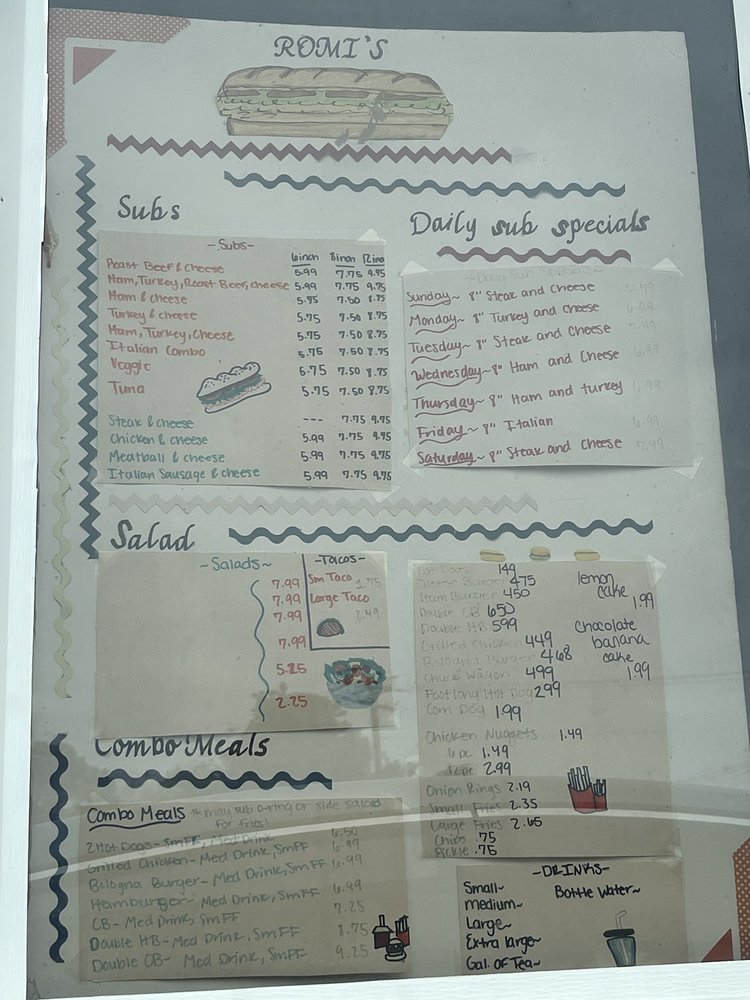 ROMI'S
Subs
-Subs-
6inch 8inch 12inch
Roast Beef & cheese 5.99 7.75 9.95
Ham, Turkey, Roast Beef, cheese 5.99 7.75 9.75
Ham & cheese 5.75 7.50 8.75
Turkey & cheese 5.75 7.50 8.75
Ham, Turkey, Cheese 5.75 7.50 8.75
Italian Combo 5.75 7.50 8.75
Veggie 5.75 7.50 8.75
Tuna 5.75 7.50 8.75
Steak & cheese --- 7.75 9.75
Chicken & cheese 5.99 7.75 9.75
Meatball & cheese 5.99 7.75 9.75
Italian Sausage & cheese 5.99 7.75 9.75
Daily sub specials
~Daily Sub Specials~
Sunday~ 8" Steak and Cheese 7.49
Monday~ 8" Turkey and Cheese 6.99
Tuesday~ 8" Steak and Cheese 7.49
Wednesday~ 8" Ham and Cheese 6.99
Thursday~ 8" Ham and turkey 6.99
Friday~ 8" Italian 6.99
Saturday~ 8" Steak and Cheese 7.49
Salad
~Salads~
7.99
7.99
7.99
7.99
5.25
2.25
-Tacos-
Sm Taco 1.75
Large Taco
2.49
Hot Dogs 149
Cheese Burger 475
Ham Burger 450
Double CB 650
Double HB 599
Grilled Chicken 449
Bologna Burger 468
Chuck Wagon 499
Footlong Hot Dog 299
Corn Dog 1.99
Chicken Nuggets 1.49
6 pc 1.49
12pc 2.99
Onion Rings 2.19
Small Fries 2.35
Large Fries 2.65
Chips .75
Pickle .75
lemon
cake
1.99
Chocolate
banana
cake
1.99
Combo Meals
Combo Meals * may sub o-ring or side salad
for fries!
2 Hot Dogs- SmFF, Med Drink 6.50
Grilled Chicken- Med Drink, SmFF 6.99
Bologna Burger- Med Drink, SmFF 6.99
Hamburger- Med Drink, SmFF 6.99
CB- Med Drink, Sm FF 7.25
Double HB- Med Drink, SmFF 8.75
Double CB- Med Drink, SmFF 9.25
-DRINKS-
Small~
Medium~
Large~
Extra large~
Gal. of Tea~
Bottle Water~